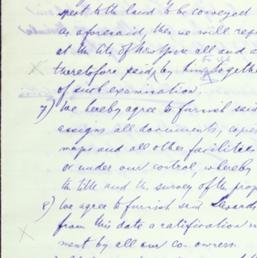 spect to the land to be conveyed
as aforesaid, then we will repay
at the City of New York all and a
therefore paid, by together
of such examination.
7) We hereby agree to furnish said
assigns all documents, copies
maps and all other facilities
or under our control, whereby
the title and the survey of the prop
8) We agree to furnish said
from this date a ratification
ment by all our co-owners